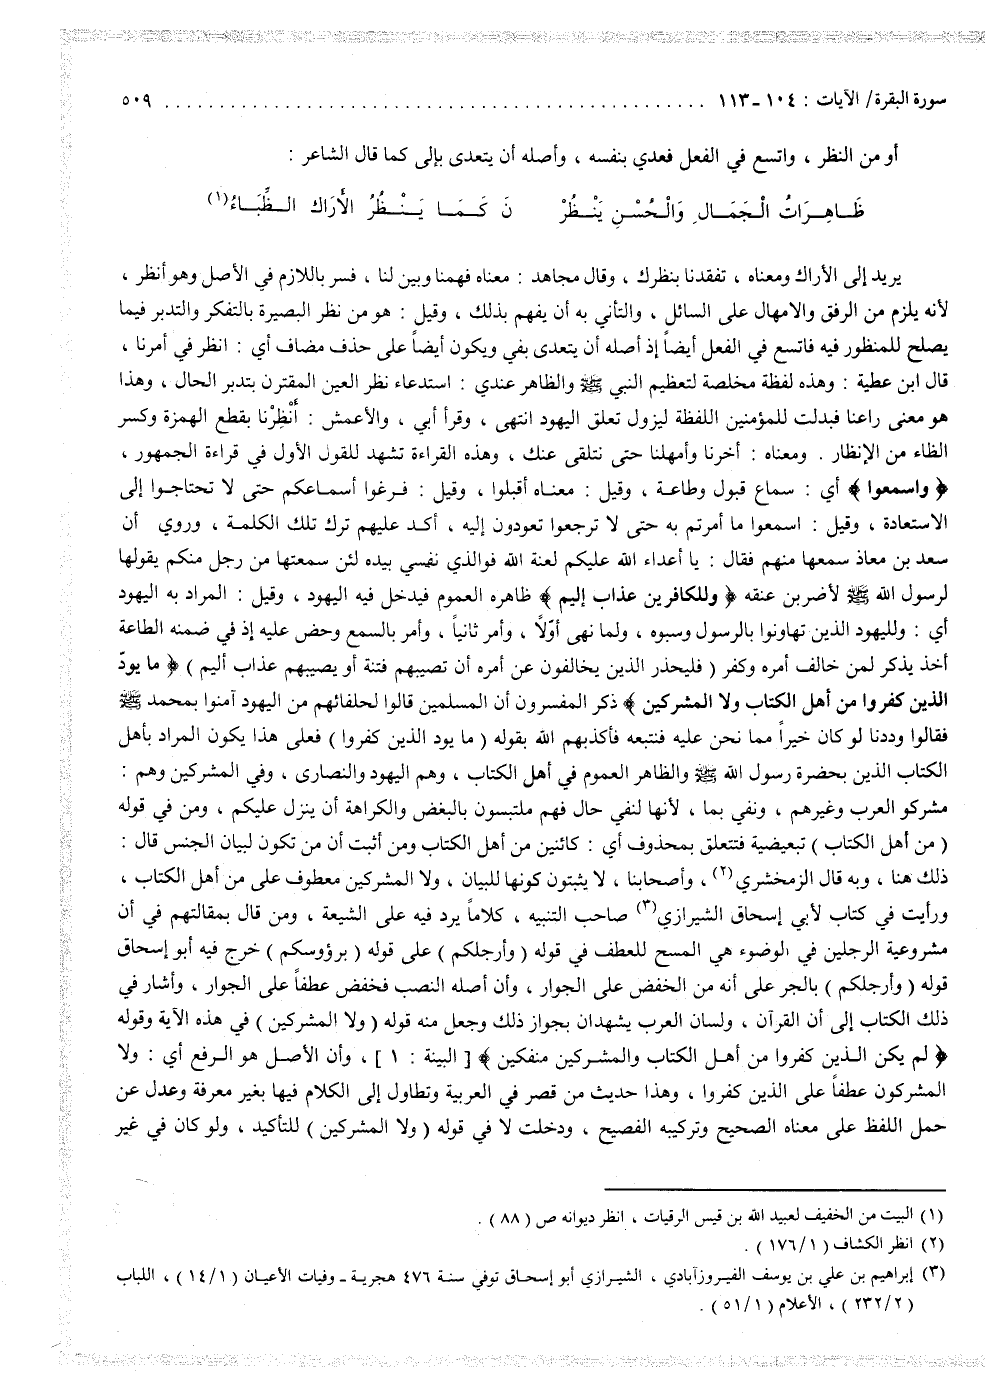 سورة البقرة/ الآيات : ١٠٤ ـ ١١٣ .................................................... ٥٠٩
أو من النظر ، واتسع في الفعل فعدي بنفسه ، وأصله أن يتعدى بإلى كما قال الشاعر :
ظَـاهِـرَاتُ الْـجَمَـالِ وَالْـحُسْـنِ يَنْظُرْ نَ كَـمَـا يَـنْـظُرُ الْأَرَاكَ الـظِّبَـاءُ(١)
يريد إلى الأراك ومعناه ، تفقدنا بنظرك ، وقال مجاهد : معناه فهمنا وبين لنا ، فسر باللازم في الأصل وهو أنظر ،
لأنه يلزم من الرفق والامهال على السائل ، والتأني به أن يفهم بذلك ، وقيل : هو من نظر البصيرة بالتفكر والتدبر فيما
يصلح للمنظور فيه فاتسع في الفعل أيضاً إذ أصله أن يتعدى بفي ويكون أيضاً على حذف مضاف أي : انظر في أمرنا ،
قال ابن عطية : وهذه لفظة مخلصة لتعظيم النبي ﷺ والظاهر عندي : استدعاء نظر العين المقترن بتدبر الحال ، وهذا
هو معنى راعنا فبدلت للمؤمنين اللفظة ليزول تعلق اليهود انتهى ، وقرأ أبي ، والأعمش : أَنْظِرْنا بقطع الهمزة وكسر
الظاء من الإنظار . ومعناه : أخرنا وأمهلنا حتى نتلقى عنك ، وهذه القراءة تشهد للقول الأول في قراءة الجمهور ،
﴿ واسمعوا ﴾ أي : سماع قبول وطاعـة ، وقيل : معنـاه أقبلوا ، وقيل : فـرغوا أسمـاعكم حتى لا تحتاجـوا إلى
الاستعادة ، وقيل : اسمعوا ما أمرتم به حتى لا ترجعوا تعودون إليه ، أكـد عليهم ترك تلك الكلمـة ، وروي أن
سعد بن معاذ سمعها منهم فقال : يا أعداء الله عليكم لعنة الله فوالذي نفسي بيده لئن سمعتها من رجل منكم يقولها
لرسول الله ﷺ لأضربن عنقه ﴿ وللكافرين عذاب إليم ﴾ ظاهره العموم فيدخل فيه اليهود ، وقيل : المراد به اليهود
أي : ولليهود الذين تهاونوا بالرسول وسبوه ، ولما نهى أوّلاً ، وأمر ثانياً ، وأمر بالسمع وحض عليه إذ في ضمنه الطاعة
أخذ يذكر لمن خالف أمره وكفر ( فليحذر الذين يخالفون عن أمره أن تصيبهم فتنة أو يصيبهم عذاب أليم ) ﴿ ما يودّ
الذين كفروا من أهل الكتاب ولا المشركين ﴾ ذكر المفسرون أن المسلمين قالوا لحلفائهم من اليهود آمنوا بمحمد ﷺ
فقالوا وددنا لو كان خيراً مما نحن عليه فنتبعه فأكذبهم الله بقوله ( ما يود الذين كفروا ) فعلى هذا يكون المراد بأهل
الكتاب الذين بحضرة رسول الله ﷺ والظاهر العموم في أهل الكتاب ، وهم اليهود والنصارى ، وفي المشركين وهم :
مشركو العرب وغيرهم ، ونفي بما ، لأنها لنفي حال فهم ملتبسون بالبغض والكراهة أن ينزل عليكم ، ومن في قوله
( من أهل الكتاب ) تبعيضية فتتعلق بمحذوف أي : كائنين من أهل الكتاب ومن أثبت أن من تكون لبيان الجنس قال :
ذلك هنا ، وبه قال الزمخشري(٢) ، وأصحابنا ، لا يثبتون كونها للبيان ، ولا المشركين معطوف على من أهل الكتاب ،
ورأيت في كتاب لأبي إسحاق الشيرازي(٣) صاحب التنبيه ، كلاماً يرد فيه على الشيعة ، ومن قال بمقالتهم في أن
مشروعية الرجلين في الوضوء هي المسح للعطف في قوله ( وأرجلكم ) على قوله ( برؤوسكم ) خرج فيه أبو إسحاق
قوله ( وأرجلكم ) بالجر على أنه من الخفض على الجوار ، وأن أصله النصب فخفض عطفاً على الجوار ، وأشار في
ذلك الكتاب إلى أن القرآن ، ولسان العرب يشهدان بجواز ذلك وجعل منه قوله ( ولا المشركين ) في هذه الآية وقوله
﴿ لم يكن الـذين كفروا من أهـل الكتاب والمشـركين منفكين ﴾ [ البينة : ١ ] ، وأن الأصـل هو الـرفع أي : ولا
المشركون عطفاً على الذين كفروا ، وهذا حديث من قصر في العربية وتطاول إلى الكلام فيها بغير معرفة وعدل عن
حمل اللفظ على معناه الصحيح وتركيبه الفصيح ، ودخلت لا في قوله ( ولا المشركين ) للتأكيد ، ولو كان في غير
(١) البيت من الخفيف لعبيد الله بن قيس الرقيات ، انظر ديوانه ص ( ٨٨ ) .
(٢) انظر الكشاف ( ١/ ١٧٦ ) .
(٣) إبراهيم بن علي بن يوسف الفيروزآبادي ، الشيرازي أبو إسحاق توفي سنة ٤٧٦ هجرية ـ وفيات الأعيان ( ١/ ١٤ ) ، اللباب
( ٢/ ٢٣٢ ) ، الأعلام ( ١/ ٥١ ) .